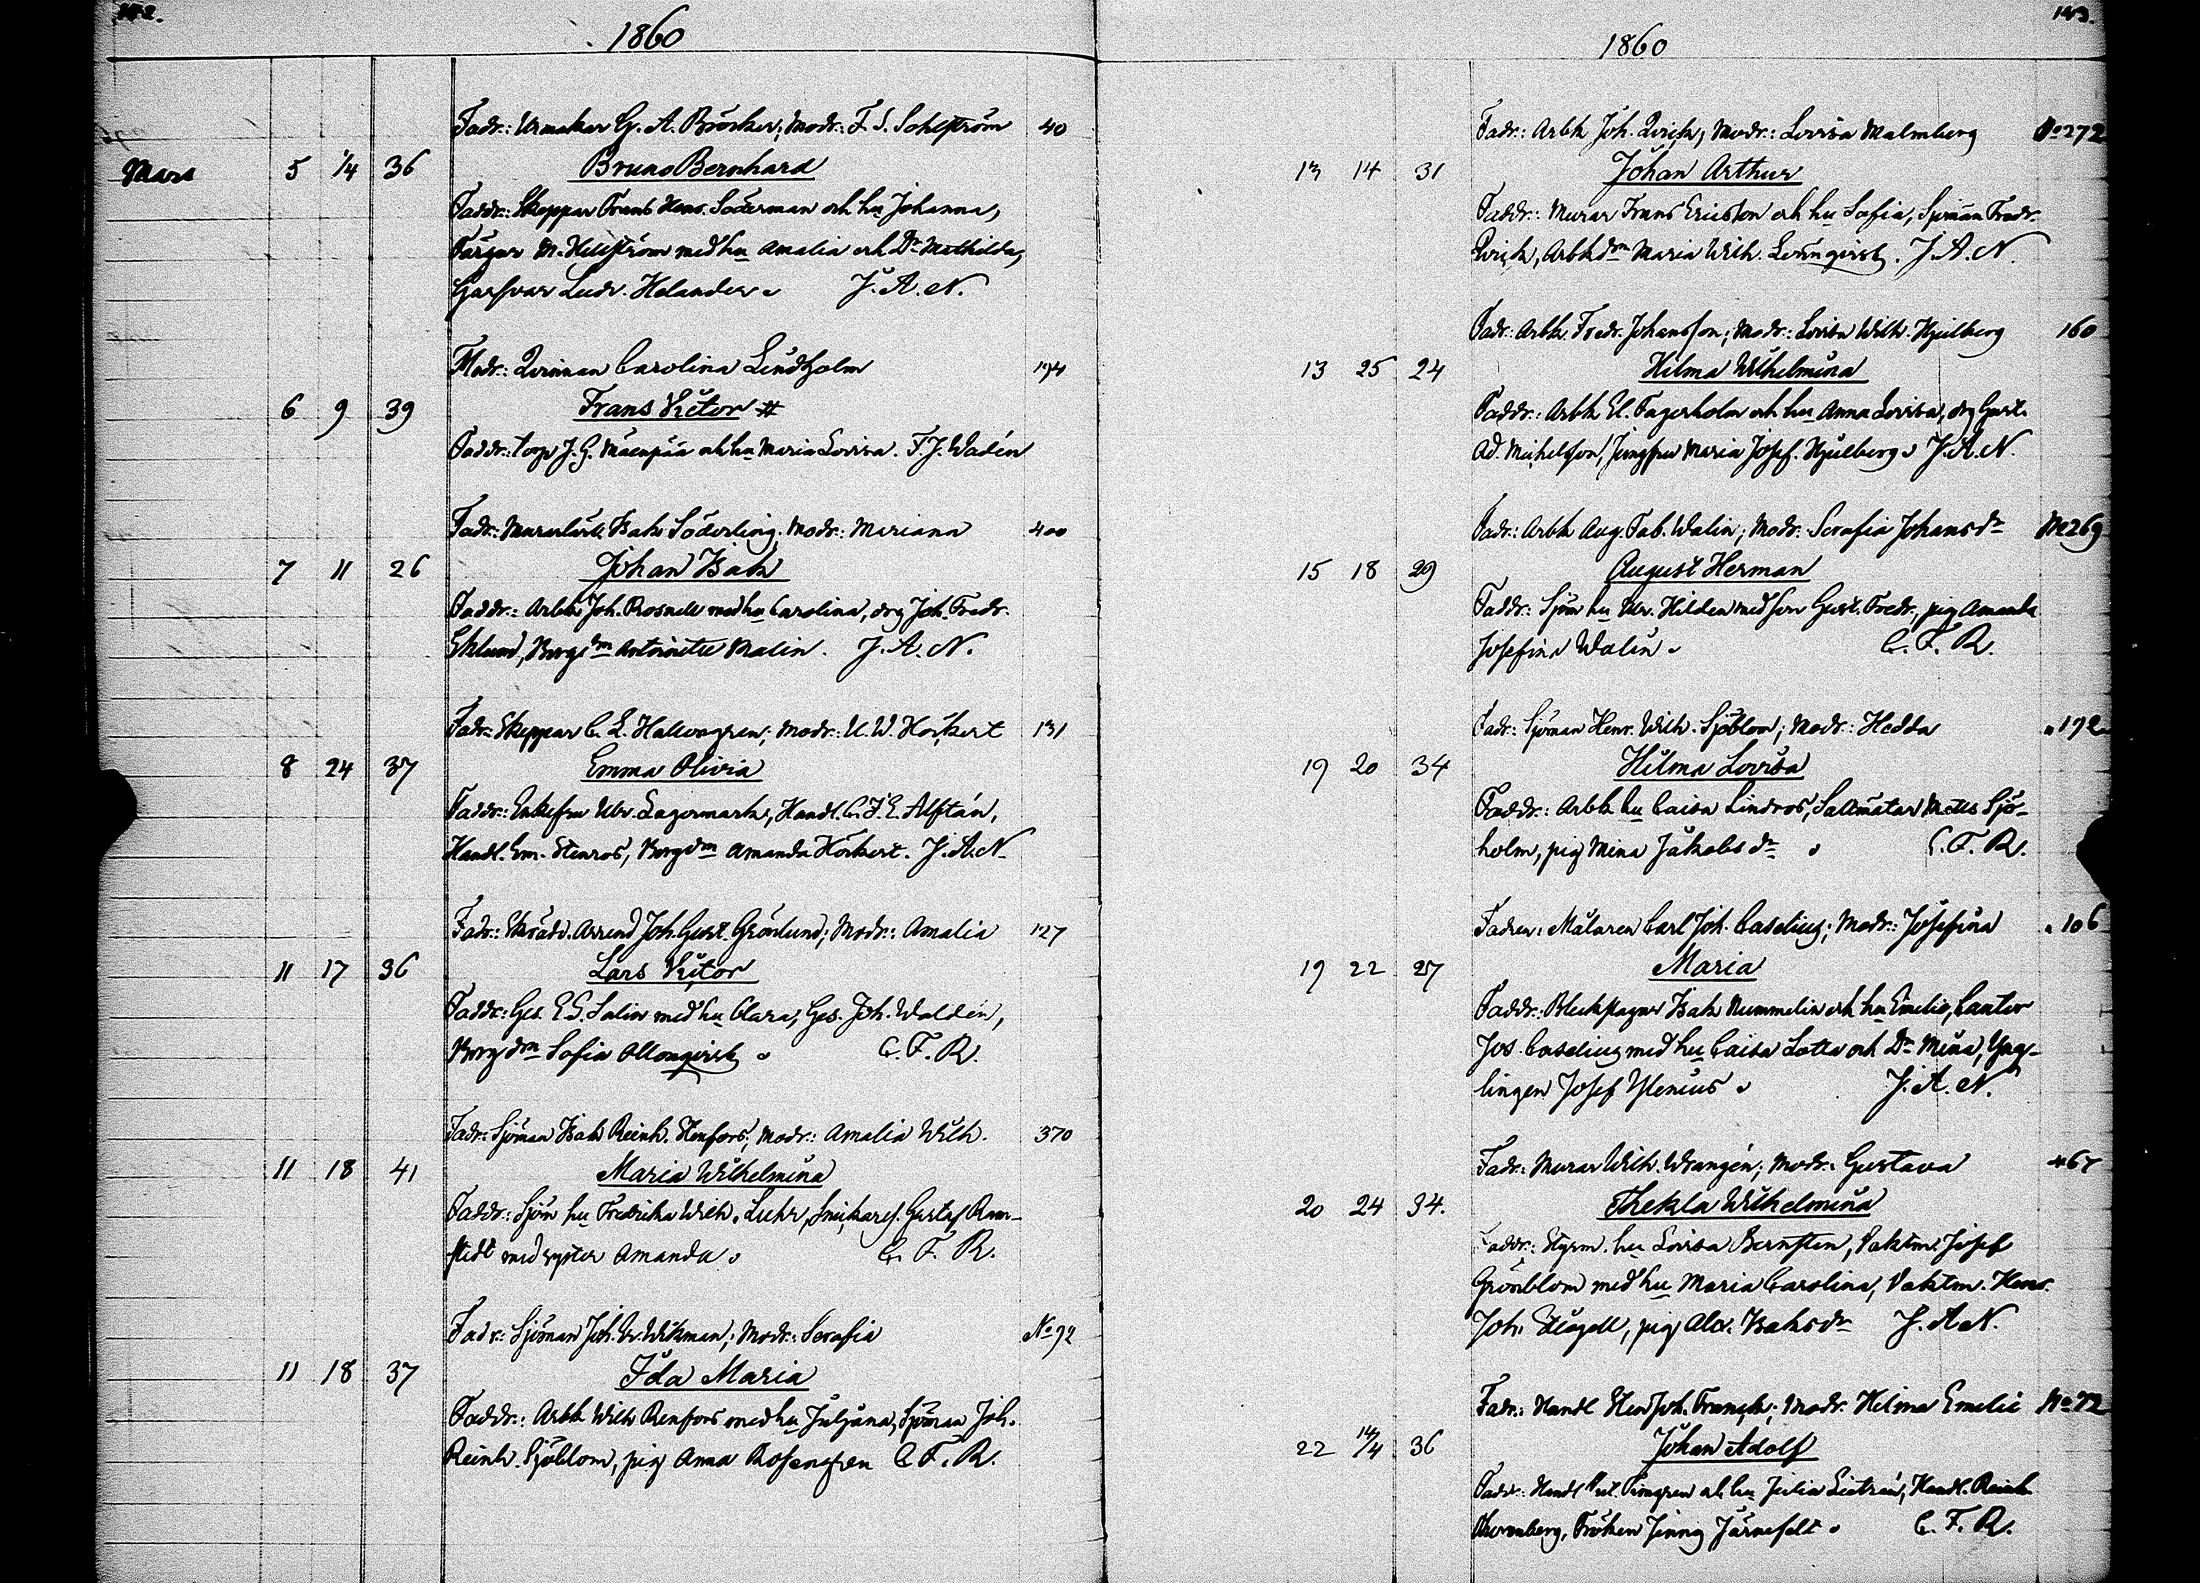 142.
1860
Fadr: Urmakar G. A. Bröcker; Modr: F. S. Sohlström 40
Mars 5 1/4 36 Bruno Bernhard
Faddr: Skeppar Frans Henr. Söderman och hu Johanna,
Färgar M. Hellström med hu Amalia och Dr Mathilda,
Garfvar Ludv. Helander. J. A. N.
Modr: Qvinnan Carolina Lindholm 194
6 9 39 Frans Victor #
Faddr: torp J. G. Mäenpää och hu Maria Lovisa. F. J. Wadén
Fadr: Isak Söderling. Modr: Mariana 400
7 11 26 Johan Isak
Faddr: Arbk Joh. Rosnell med hu Carolina, drg Joh. Fredr.
Eklund, Borg dm Antoinette Malin. J. A. N.
Fadr: Skeppar C. L. Hallongren; Modr: U. W. Höckert 131
8 24 37 Emma Olivia
Faddr: Enkefru Ulr. Lagermark, Handl. C. F. E. Alftán,
Handl. Em. Stenros, Borgdm Amanda Höckert. J. A. N.
Fadr: Arrend Joh. Gust. Grönlund; Modr: Amalia 127
11 17 36 Lars Victor
Faddr: Ges. E. G. Salin med hu Clara, Ges. Joh. Waldén,
Borg dm Sofia Ollonqvist. C. F. R.
Fadr: Sjöman Isak Reinh. Stenfors; Modr: Amalia Wilh. 370
11 18 41 Maria Wilhelmina
Faddr: Sjöm hu Fredrika Wilh. Luhr, Snickareg. Gustaf Ram-
stedt med syster Amanda. C. F. R.
Fadr: Sjöman Joh. Wikman; Modr: Serafia No 92
11 18 37 Ida Maria
Faddr: Arbk Wilh Renfors med hu Juliana, Sjöman Joh.
Reinh. Sjöblom, pig Anna Rosengren C. F. R.
143.
1860
Fadr: Arbk Joh. Qvick; Modr: Lovisa Malmberg No 272
13 14 31 Johan Arthur
Faddr: Murar Frans Ericsson och hu Sofia, Sjöman Fredr.
Qvick, Arbkdm Maria Wilh. Lönnqvist. J. A. N.
Fadr: Arbk Fredr. Johansson; Modr: Lovisa Wilh. Hjulberg 160
13 25 24 Hilma Wilhelmina
Faddr: Arbk El. Fagerholm och hu Anna Lovisa, drg Gust.
Ad. Michelsson, Jungfru Maria Josef. Hjulberg. J. A. N.
Fadr: Arbk Aug. Fab. Walin; Modr: Serafia Johansdr No 269
15 18 29 August Herman
Faddr: Sjöm hu Ulr. Hilden med son Gust. Fredr, pig Amanda
Josefina Walin. C. F. R.
Fadr: Sjöman Henr. Wilh. Sjöblom; Modr: Hedda 192
19 20 34 Hilma Lovisa
Faddr: Arbk hu Caisa Lindros, Saltmätar Matts Sjö-
holm, pig Mina Jakobsdr. C. F. R.
Fadren: Målaren Carl Joh. Caselius; Modr: Josefina 106
19 22 27 Maria
Faddr: Bleckslagar Isak Nummelin och hu Emelie, Cantor
Jos. Caselius med hu Caisa Lotta och Dr Mina, Yng-
lingen Josef Ylenius. J. A. N.
Fadr: Murar Wilh. Wrangén; Modr: Gustava 467
20 24 34. Thekla Wilhelmina
Faddr: Styrm. hu Lovisa Bernsten, Vaktm. Josef
Grönblom med hu Maria Carolina, Vaktm. Henr.
Joh. pig Alex. Isaksdr J. A. N.
Fadr: Handl Joh. Franck; Modr Hilma Emelie No 72
22 14/4 36 Johan Adolf
Faddr: Handl och hu Julia Handl. Reinh
Fröken Jenny Järnefelt. C. F. R.